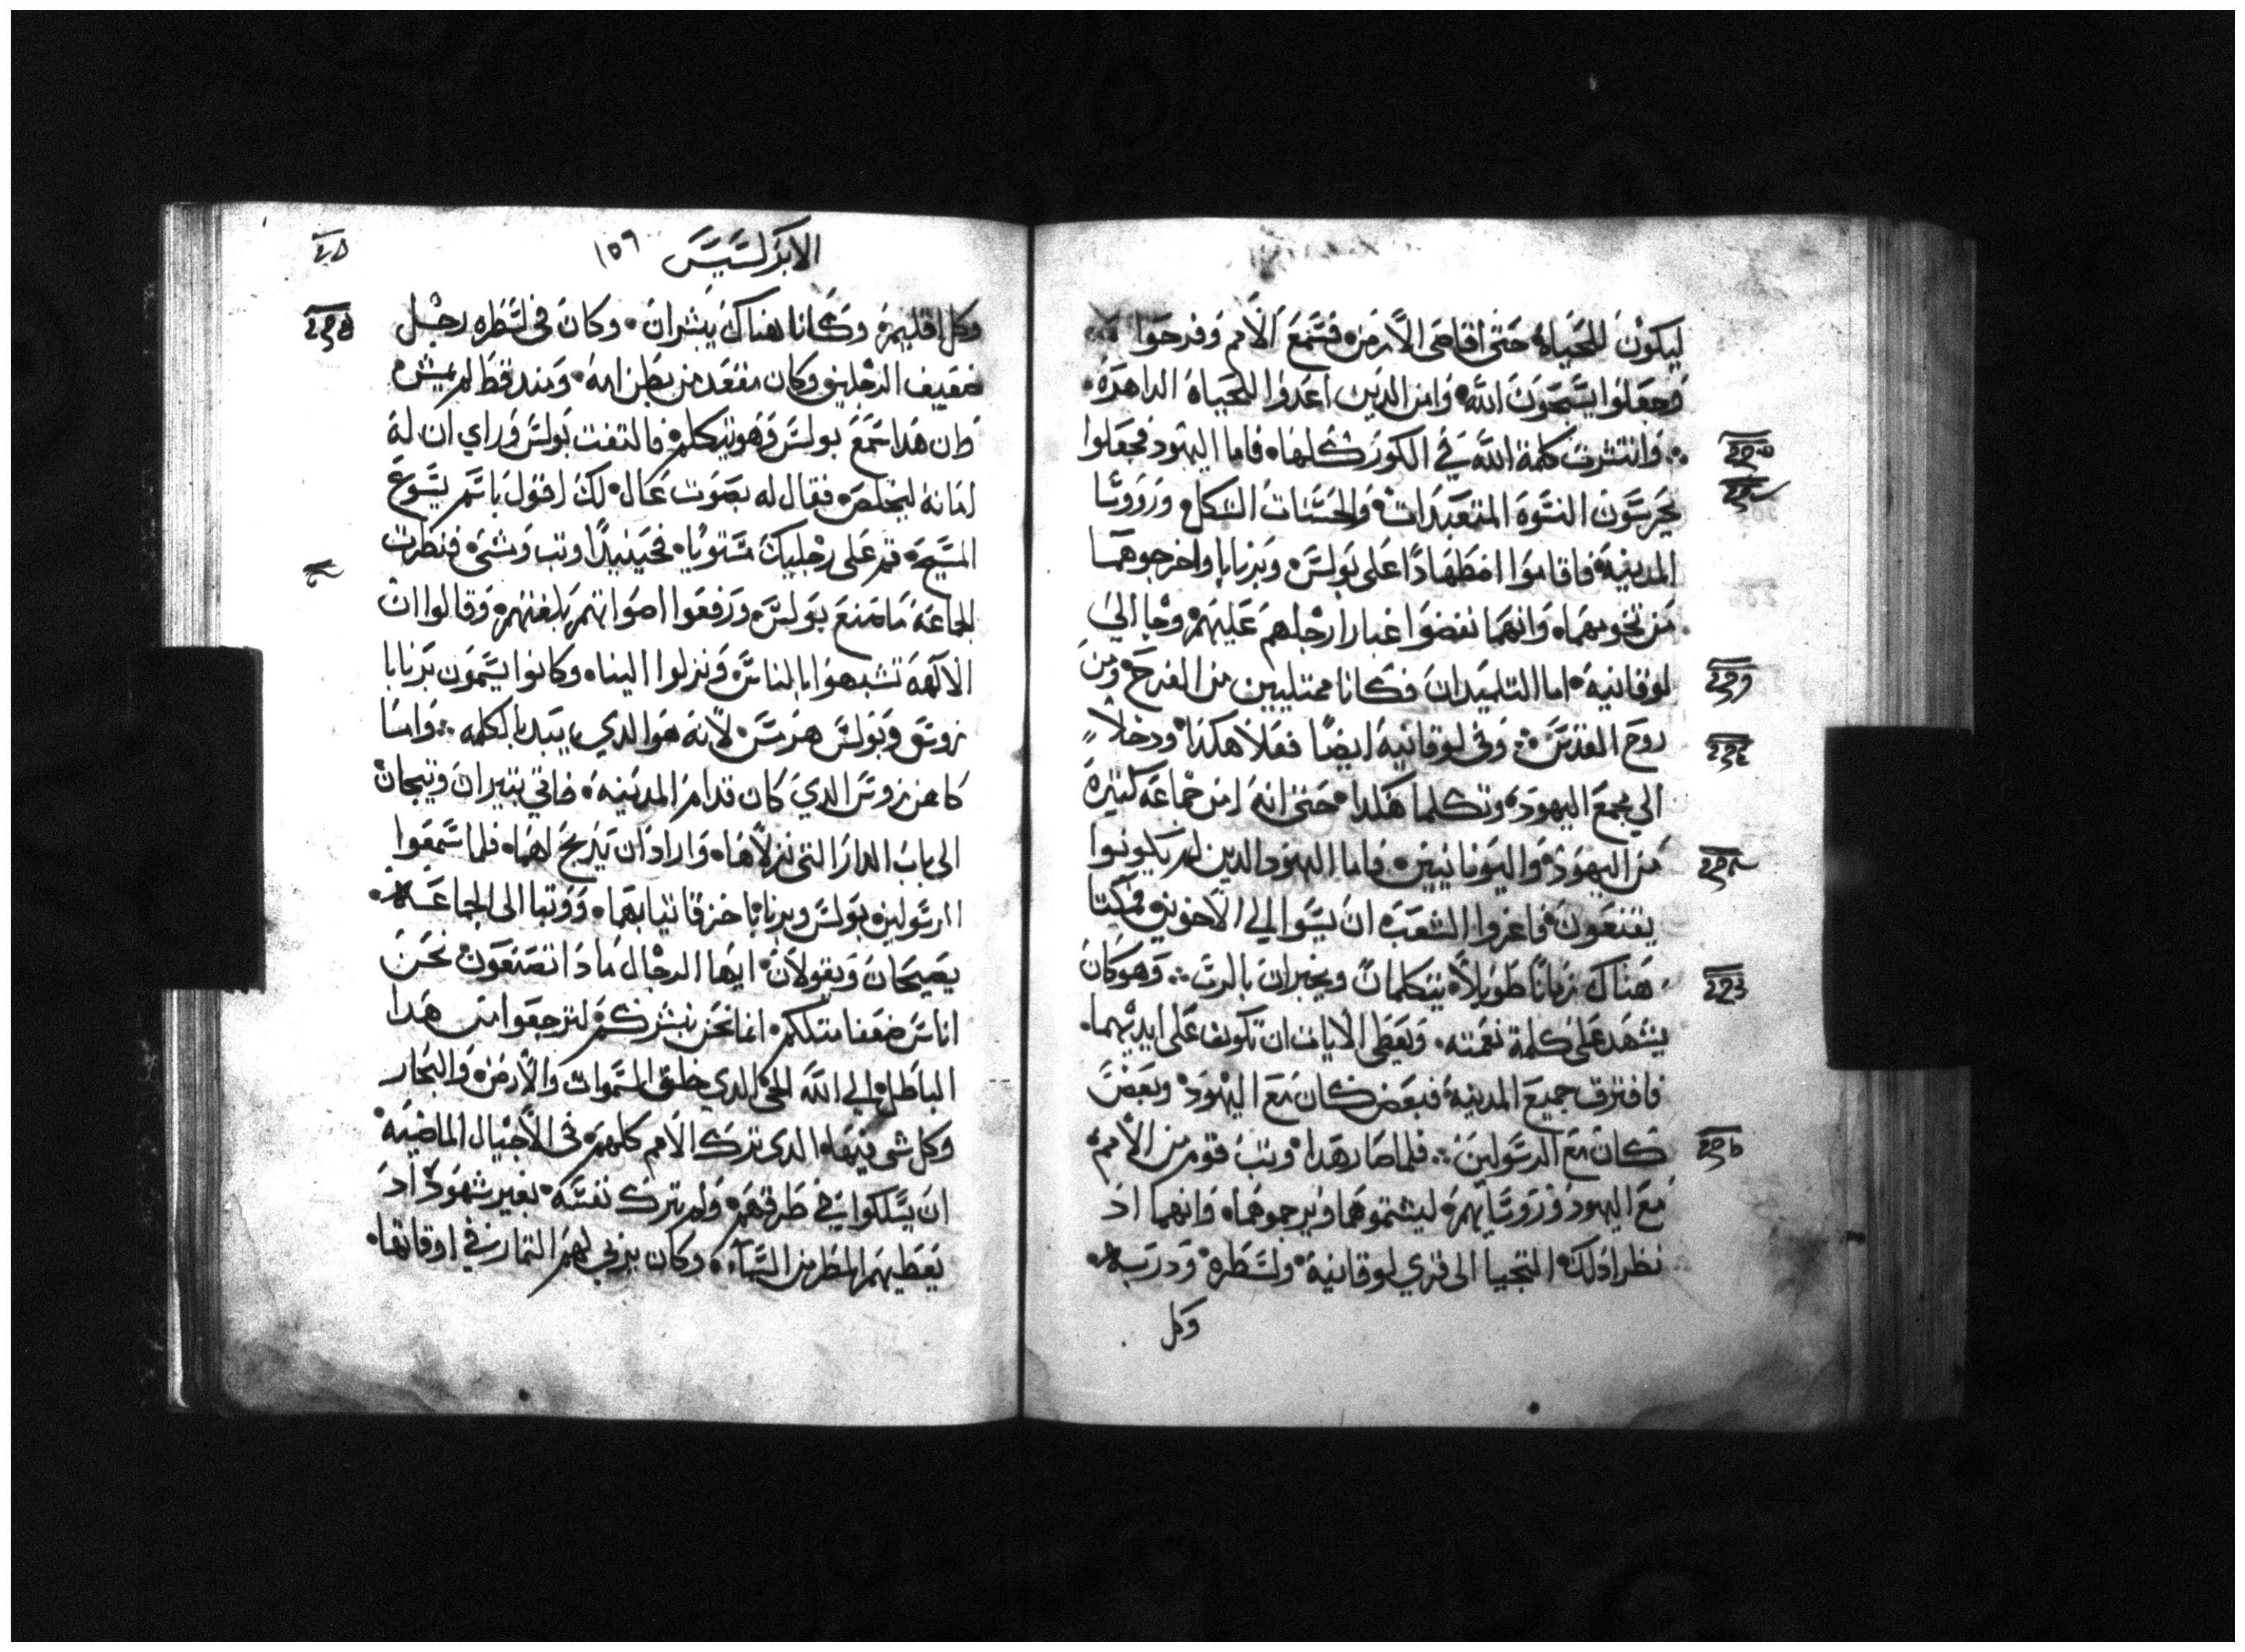 ليكون للحياه حتى اقاصى الارض فسمع الامم وفرحوا
وجعلوا يسبحون الله وامن الدين اعدوا للحياة الداهرة
وانتشرت كلمة الله في الكور كلها فاما اليهود فجعلوا
يحرسون النسوة المتعبدات والحسنات الشكل وروؤسا
المدينة فاقاموا اضطهادًا على بولس وبرنابا واخرجوهما
من تخومهما وانهما نفضوا غبار ارجلهم عليهم وجا الي
لوقانية اما التلميدان فكانا ممتليين من الفرح ومن
روح القدس وفى لوقانية ايضًا فعلا هكذا ودخلا
الي مجمع اليهود وتكلما هكدا حتى انه امن جماعة كثيرة
من اليهود واليونانيين فاما اليهود الدين لم يكونوا
يقنعون فاغروا الشعب ان يسوا الي الاخوين فمكتا
هناك زمانًا طويلاً يتكلمان ويخبران بالرب وهو كان
يشهد على كلمة نعمته ويعطى الايات ان تكون على ايديهما
فافترق جميع المدينة فبعض كان مع اليهود وبعض
كان مع الرسولين فلما صار هدا وتب قوم من الامم
مع اليهود وروسايهم ليشتموهما ويرجموهما وانهما اد
نظرا دلك التجيا الى قري لوقانية ولسطرة ودربه
وكل
الابركسيس ١٥٩
وكل اقليمهم وكانا هناك يبشران وكان فى لسطره رجل
ضعيف الرجلين وكان مقعد من بطن امه ومند قط لم يمش
كان هدا سمع بولس وهو يتكلم فالتفت بولس وراي ان له
امانة ليخلص فقال له بصوت عال لك اقول باسم يسوع
المسيح قم على رجليك مستويًا فحينيدًا وتب ومشى فنظرت
الجماعة ما صنع بولس ورفعوا اصواتهم بلغتهم وقالوا ان
الالهة تشبهوا بالناس ونزلوا الينا وكانوا يسمون برنابا
زوس وبولس هرمس لانه هو الدي يبدا بالكلمه واما
كاهن زوس الدي كان قدام المدينة فاتي بتيران وتيجان
الى باب الدار التى نزلاها واراد ان يدبح لهما فلما سمعوا
الرسولين بولس وبرنابا خرقا تيابهما ووتبا الى الجماعة
يصيحان ويقولان ايها الرجال مادا تصنعون نحن
اناس ضعفا متلكم انما نحن نبشركم لترجعوا من هدا
الباطل الي الله الحى الدي خلق السموات والارض والبحار
وكل شى فيها الدى ترك الامم كلهم فى الاجيال الماضية
ان يسلكوا في طرقهم ولم يترك نفسه بغير شهود اد
يعطيهم المطر من السماء وكان يربي لهم التمار في اوقاتها